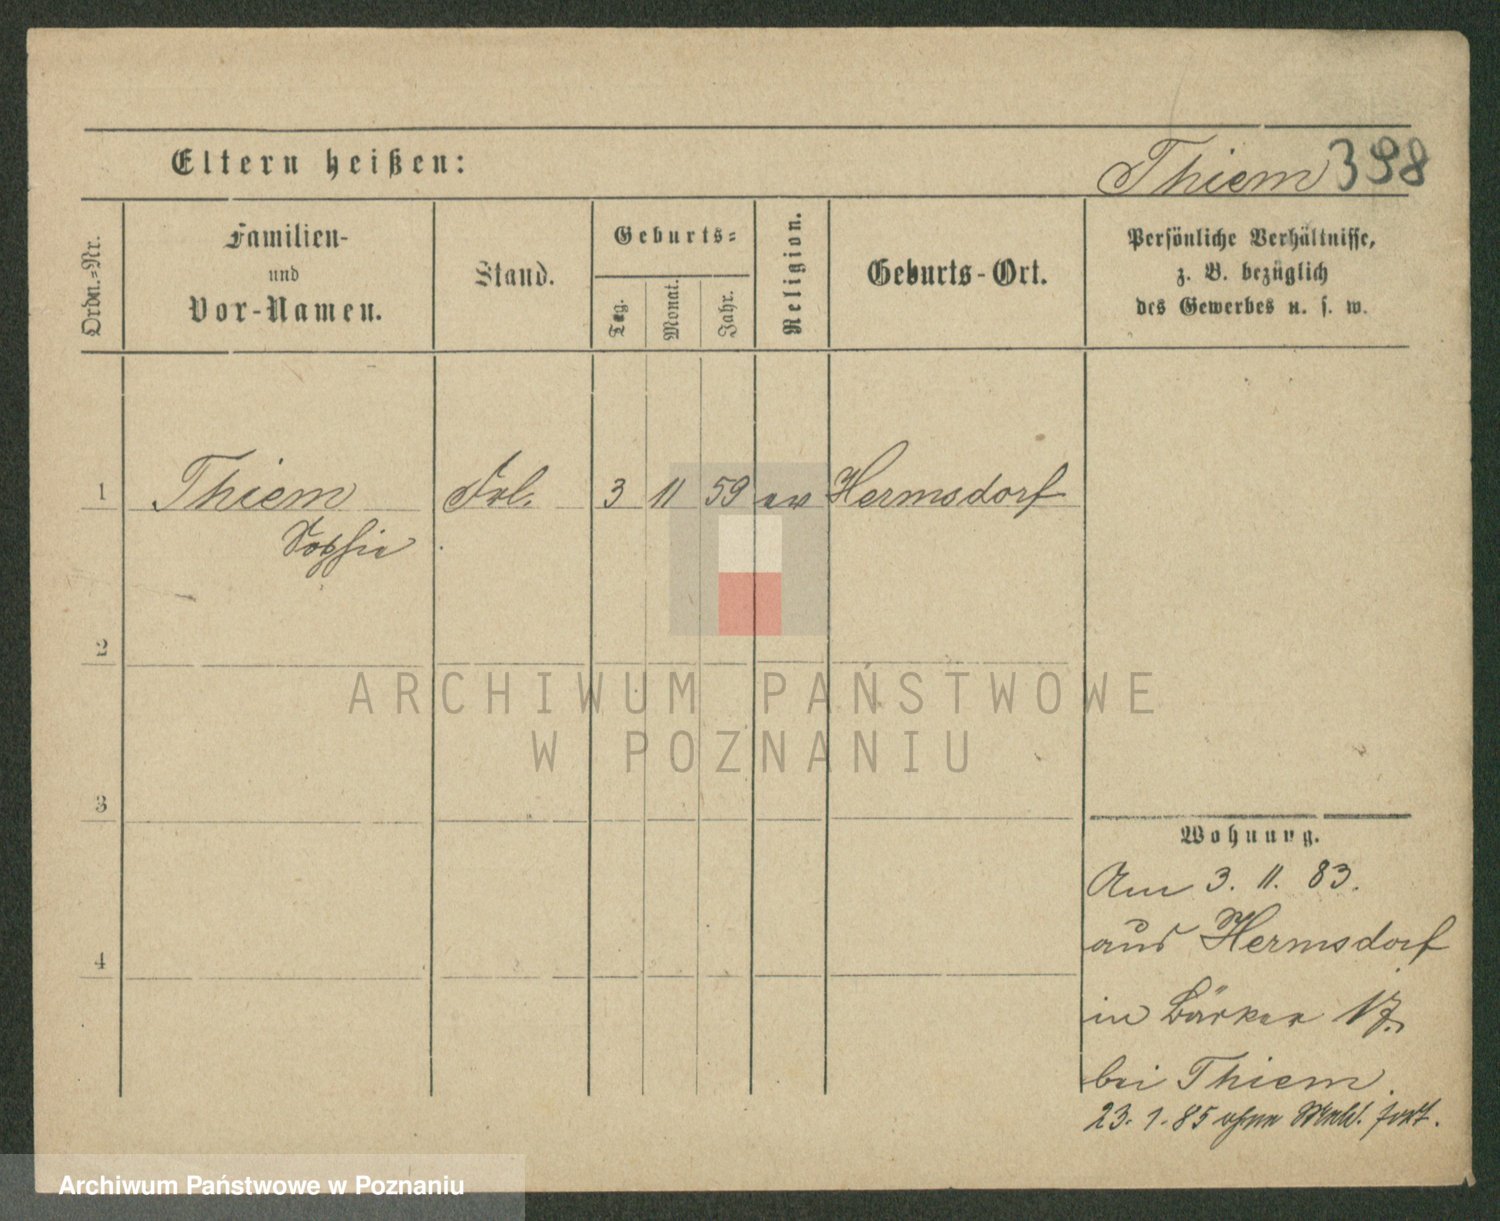 Eltern heißen:
Thiem 398
Ordn.=Nr.
Familien-
und
Vor-Namen.
Stand.
Geburts=
Tag.
Monat.
Jahr.
Religion.
Geburts-Ort.
Persönliche Verhältnisse,
z. B. bezüglich
des Gewerbes u. s. w.
1 Thiem Frl. 3 11 59 ev Hermsdorf
Sophie
2
3
4
Wohnung.
Am 3. 11. 83.
aus Hermsdorf
in Bäcker 17.
bei Thiem.
23. 1. 85 ohne Meld. fort.
ARCHIWUM PAŃSTWOWE
W POZNANIU
Archiwum Państwowe w Poznaniu